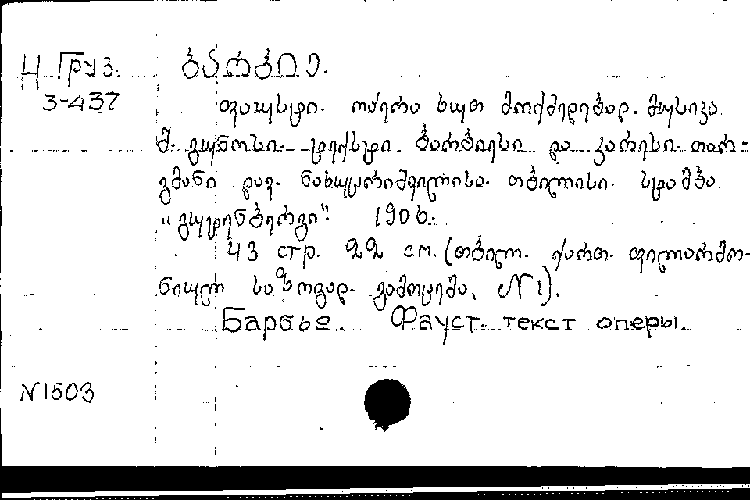 Н Груз. ბარბიე.
3-437 ფაუსტი. ოპერა ხუთ მოქმედებად. მუსიკა
შ. გუნოსი. ტექსტი ბარბიესი და კარესი. თარ-
გმანი დავ. ნახუცრიშვილისა. თბილისი. სტამბა
"გუტენბერგი". 1906.
43 стр. 22 см. (თბილ. ქართ. ფილარმო-
ნიულ საზოგად. გამოცემა, №1).
Барбье. Фауст. текст оперы.
N1503